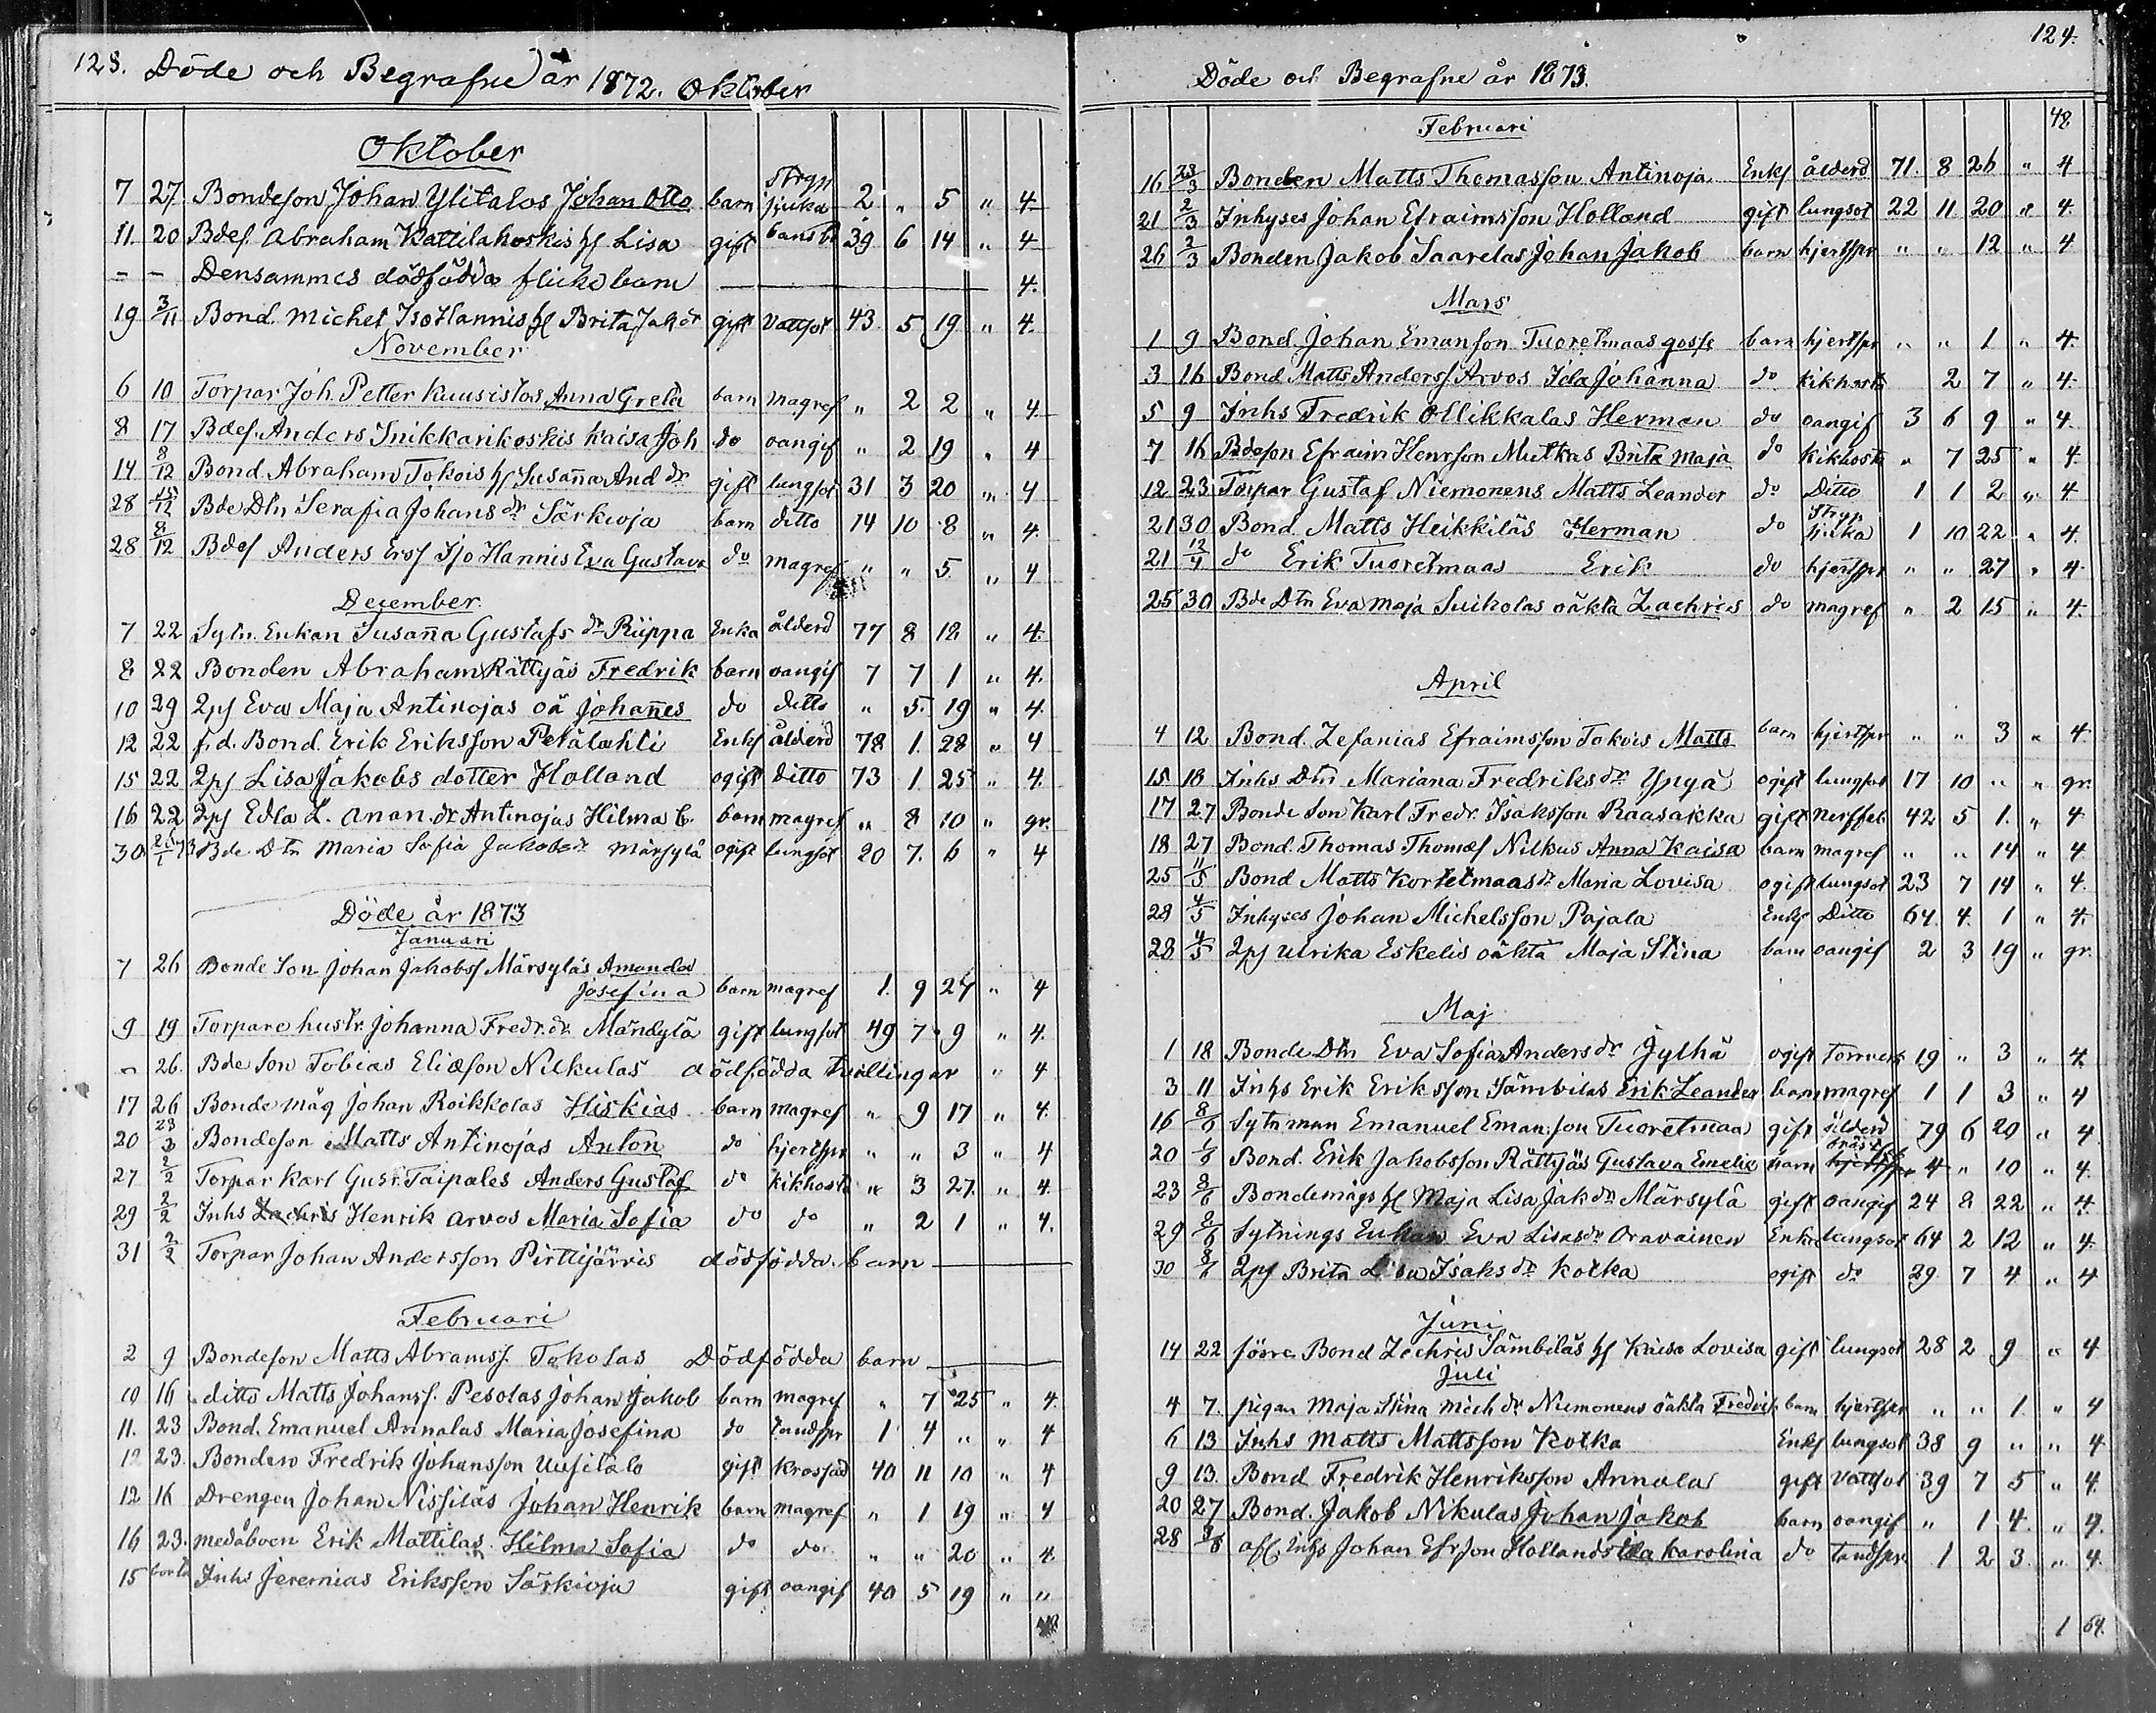 123. Döde och Begrafne år 1872. Oktober
Oktober
7 27 Bondeson Johan Ylitalos Johan Otto barn Strypsjuka 2 " 5 " 4
11. 20 Bdes. Abraham Kattilakoskis h/ Lisa gift barnsb 39 6 14 " 4
- - Densammes dödfödda flickebarn 4.
19 3/11 Bond. Michel IsoHannis h/ Brita Jak dr gift Vattsot 43 5 19 " 4.
November
6 10 Torpar Joh. Petter Kuusistos Anna Greta barn magref " 2 2 " 4
8 17 Bdes. Anders Snikkarikoskis Kaisa Joh do oangif " 2 19 " 4
14 8/12 Bond. Abraham Tokois h/ Susanna And dr gift lungsot 31 3 20 " 4
28 15/12 Bde Dtn Serafia Johans dr Särkioja barn ditto 14 10 8 " 4.
28 8/12 Bdes Anders Ers/ Iso Hannis Eva Gustava do magref " " 5 " 4
December.
7 22 Sytn. Enkan Susanna Gustafs dr Riippa Enka ålderd 77 8 12 " 4.
8 22 Bonden Abraham Rättyäs Fredrik barn oangif 7 7 1 " 4.
10 29 2pf Eva Maja Antinojas oä Johannes do ditto " 5. 19 " 4.
12 22 f.d. Bond. Erik Eriksson Petälahti Enkf ålderd 78 1. 28 " 4
15 22 2pf Lisa Jakobs dotter Holland ogift ditto 73 1 25 " 4.
16 22 2pf Edla L. Anan. dr Antinojas Hilma E. barn magref " 8 10 " gr.
30 Bde Dtn Maria Sofia Jakobs dr Märsylä ogift lungsot 20 7. 6 " 4
Döde år 1873
Januari
7 26 Bonde Son Johan Jakobs/ Märsyläs Amanda
Josefina barn magref 1. 9 27 " 4
9 19 Torpare hustr. Johanna Fredr. dr Mändylä gift lungsot 49 7 9 " 4.
" 26. Bde Son Tobias Eliæson Nilkulas dödfödda tvillingar " 4
17 26 Bonde måg Johan Roikkolas Hiskias barn magref " 9 17 " 4.
20 23/3 Bondeson Matts Antinojas Anton do hjertspr " " 3 " 4
27 2/2 Torpar Karl Gust. Taipales Anders Gustaf do kikhosta " 3 27. " 4.
29 2/2 Inhs Zachris Henrik Arvos Maria Sofia do do " 2 1 " 4.
31 2/2 Torpar Johan Andersson Pirttijärvis dödfödda barn
Februari
2 9 Bondeson Matts Abramss. Tokolas Dödfödda barn
10 16 ditto Matts Johans/. Pesolas Johan Jakob barn magref " 7 25 " 4.
11. 23 Bond. Emanuel Annalas Maria Josefina do tandspr 1 4 " " 4
12 23. Bonden Fredrik Johansson Uusitalo gift krossad 40 11 10 " 4
12 16 Drengen Johan Nissiläs Johan Henrik barn magref " 1 19 " 4
16 23. medåboen Erik Mattilas Hilma Sofia do do " " 20 " 4
15 borta Inhs Jeremias Eriksson Särkioja gift oangif 40 5 19 " "
124.
Döde och Begrafne år 1873.
48
Februari
16 23/3 Bonden Matts Thomasson Antinoja Enkf ålderd 71. 8 26 " 4
21 2/3 Inhyses Johan Efraimsson Holland gift lungsot 22 11 20 " 4.
26 2/3 Bonden Jakob Saarelas Johan Jakob barn hjertspr " " 12 " 4
Mars
1 9 Bond. Johan Emanson Tuoretmaas gosse barn hjertspr " " 1 " 4.
3 16 Bond Matts Anders/ Arvos Ida Johanna do kikhosta 2 7 " 4.
5 9 Inhs Fredrik Ollikkalas Herman do oangif 3 6 9 " 4.
7 16 Bdeson Efraim Henrson Mutkas Brita Maja do kikhosta " 7 25 " 4.
12 23 Torpar Gustaf Niemonens Matts Leander do Ditto 1 1 2 " 4
21 30 Bond. Matts Heikkiläs Herman do Strypsjuka 1 10 22 " 4.
21 12/4 do Erik Tuoretmaas Erik do hjertspr " " 27 " 4.
25 30 Bde Dtn Eva Maja Suikolas oäkta Zachris do magref " 2 15 " 4.
April
4 12 Bond. Zefanias Efraimsson Tokois Matts barn hjertspr " " 3 " 4
15 18 Inhs Dtn Mariana Fredriks dr Ypyä ogift lungsot 17 10 " " gr.
17 27 Bonde Son Karl Fredr. Isaksson Raasakka gift nerffeb 42 5 1. " 4
18 27 Bond. Thomas Thomæs Nilkus Anna Kaisa barn magref " " 14 " 4
25 11/5 Bond Matts Kortetmaas dr Maria Lovisa ogift lungsot 23 7 14 " 4.
28 4/5 Inhyses Johan Michelsson Pajala Enkf Ditto 64. 4. 1 " 4.
28 4/5 2pf Ulrika Eskelis oäkta Maja Stina barn oangif 2 3 19 " gr.
Maj
1 18 Bonde Dtn Eva Sofia Anders dr Jylhä ogift 19 " 3 " 4
3 11 Inhs Erik Eriksson Sämbiläs Erik Leander barn magref 1 1 3 " 4
16 8/6 Sytn man Emanuel Eman.son Tuoretmaa gift ålderd 79 6 20 " 4
20 1/6 Bond. Erik Jakobsson Rättyäs Gustava Emelia barn hjertspr 4 " 10 " 4.
23 8/6 Bondemågs h/ Maja Lisa Jak dr Märsylä gift oangif 24 8 22 " 4
29 8/6 Sytnings Enkan Eva Lisas dr Oravainen Enka lungsot 64 2 12 " 4.
30 8/6 2pf Brita Lisa Isaks dr Kotka ogift do 29 7 4 " 4
Juni
14 22 före Bond Zachris Sämbiläs h/ Kaisa Lovisa gift lungsot 28 2 9 " 4
Juli
4 7. pigan Maja Stina Mich dr Niemonens oäkta Fredrik barn hjertspr " " 1. " 4
6 13 Inhs Matts Mattsson Kotka Enkf lungsot 38 9 " " 4
9 13. Bond Fredrik Henriksson Annala gift Vattsot 39 7 5 " 4.
20 27 Bond. Jakob Nikulas Johan Jakob barn oangif " 1 4. " 4.
28 3/8 afl. Inhs Johan Efrson Hollands Ida Karolina do tandspr 1 2 3. " 4.
1 64.